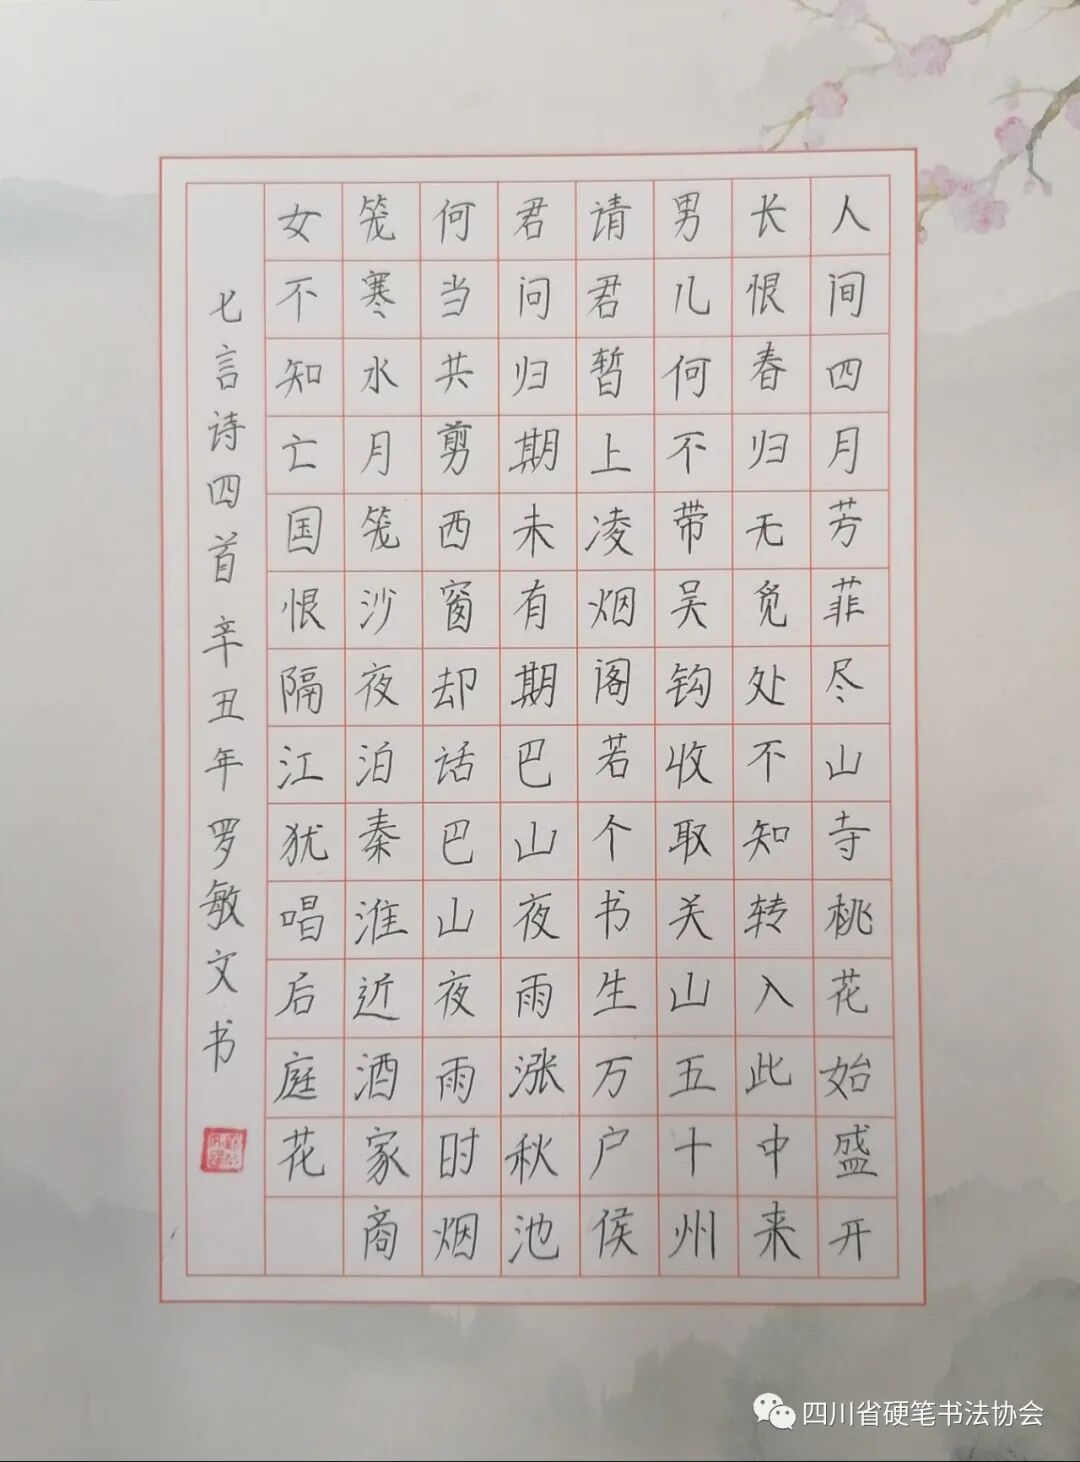 人间四月芳菲尽山寺桃花始盛开
长恨春归无觅处不知转入此中来
男儿何不带吴钩收取关山五十州
请君暂上凌烟阁若个书生万户侯
君问归期未有期巴山夜雨涨秋池
何当共剪西窗却话巴山夜雨时烟
笼寒水月笼沙夜泊秦淮近酒家商
女不知亡国恨隔江犹唱后庭花
七言诗四首辛丑年罗敏文书
四川省硬笔书法协会